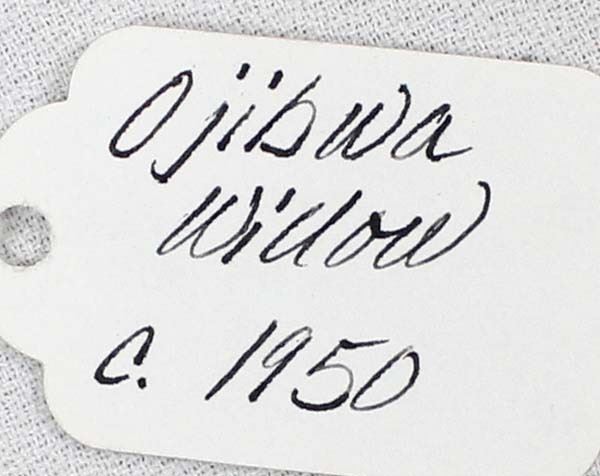 Ojibwa
Willow
c. 1950